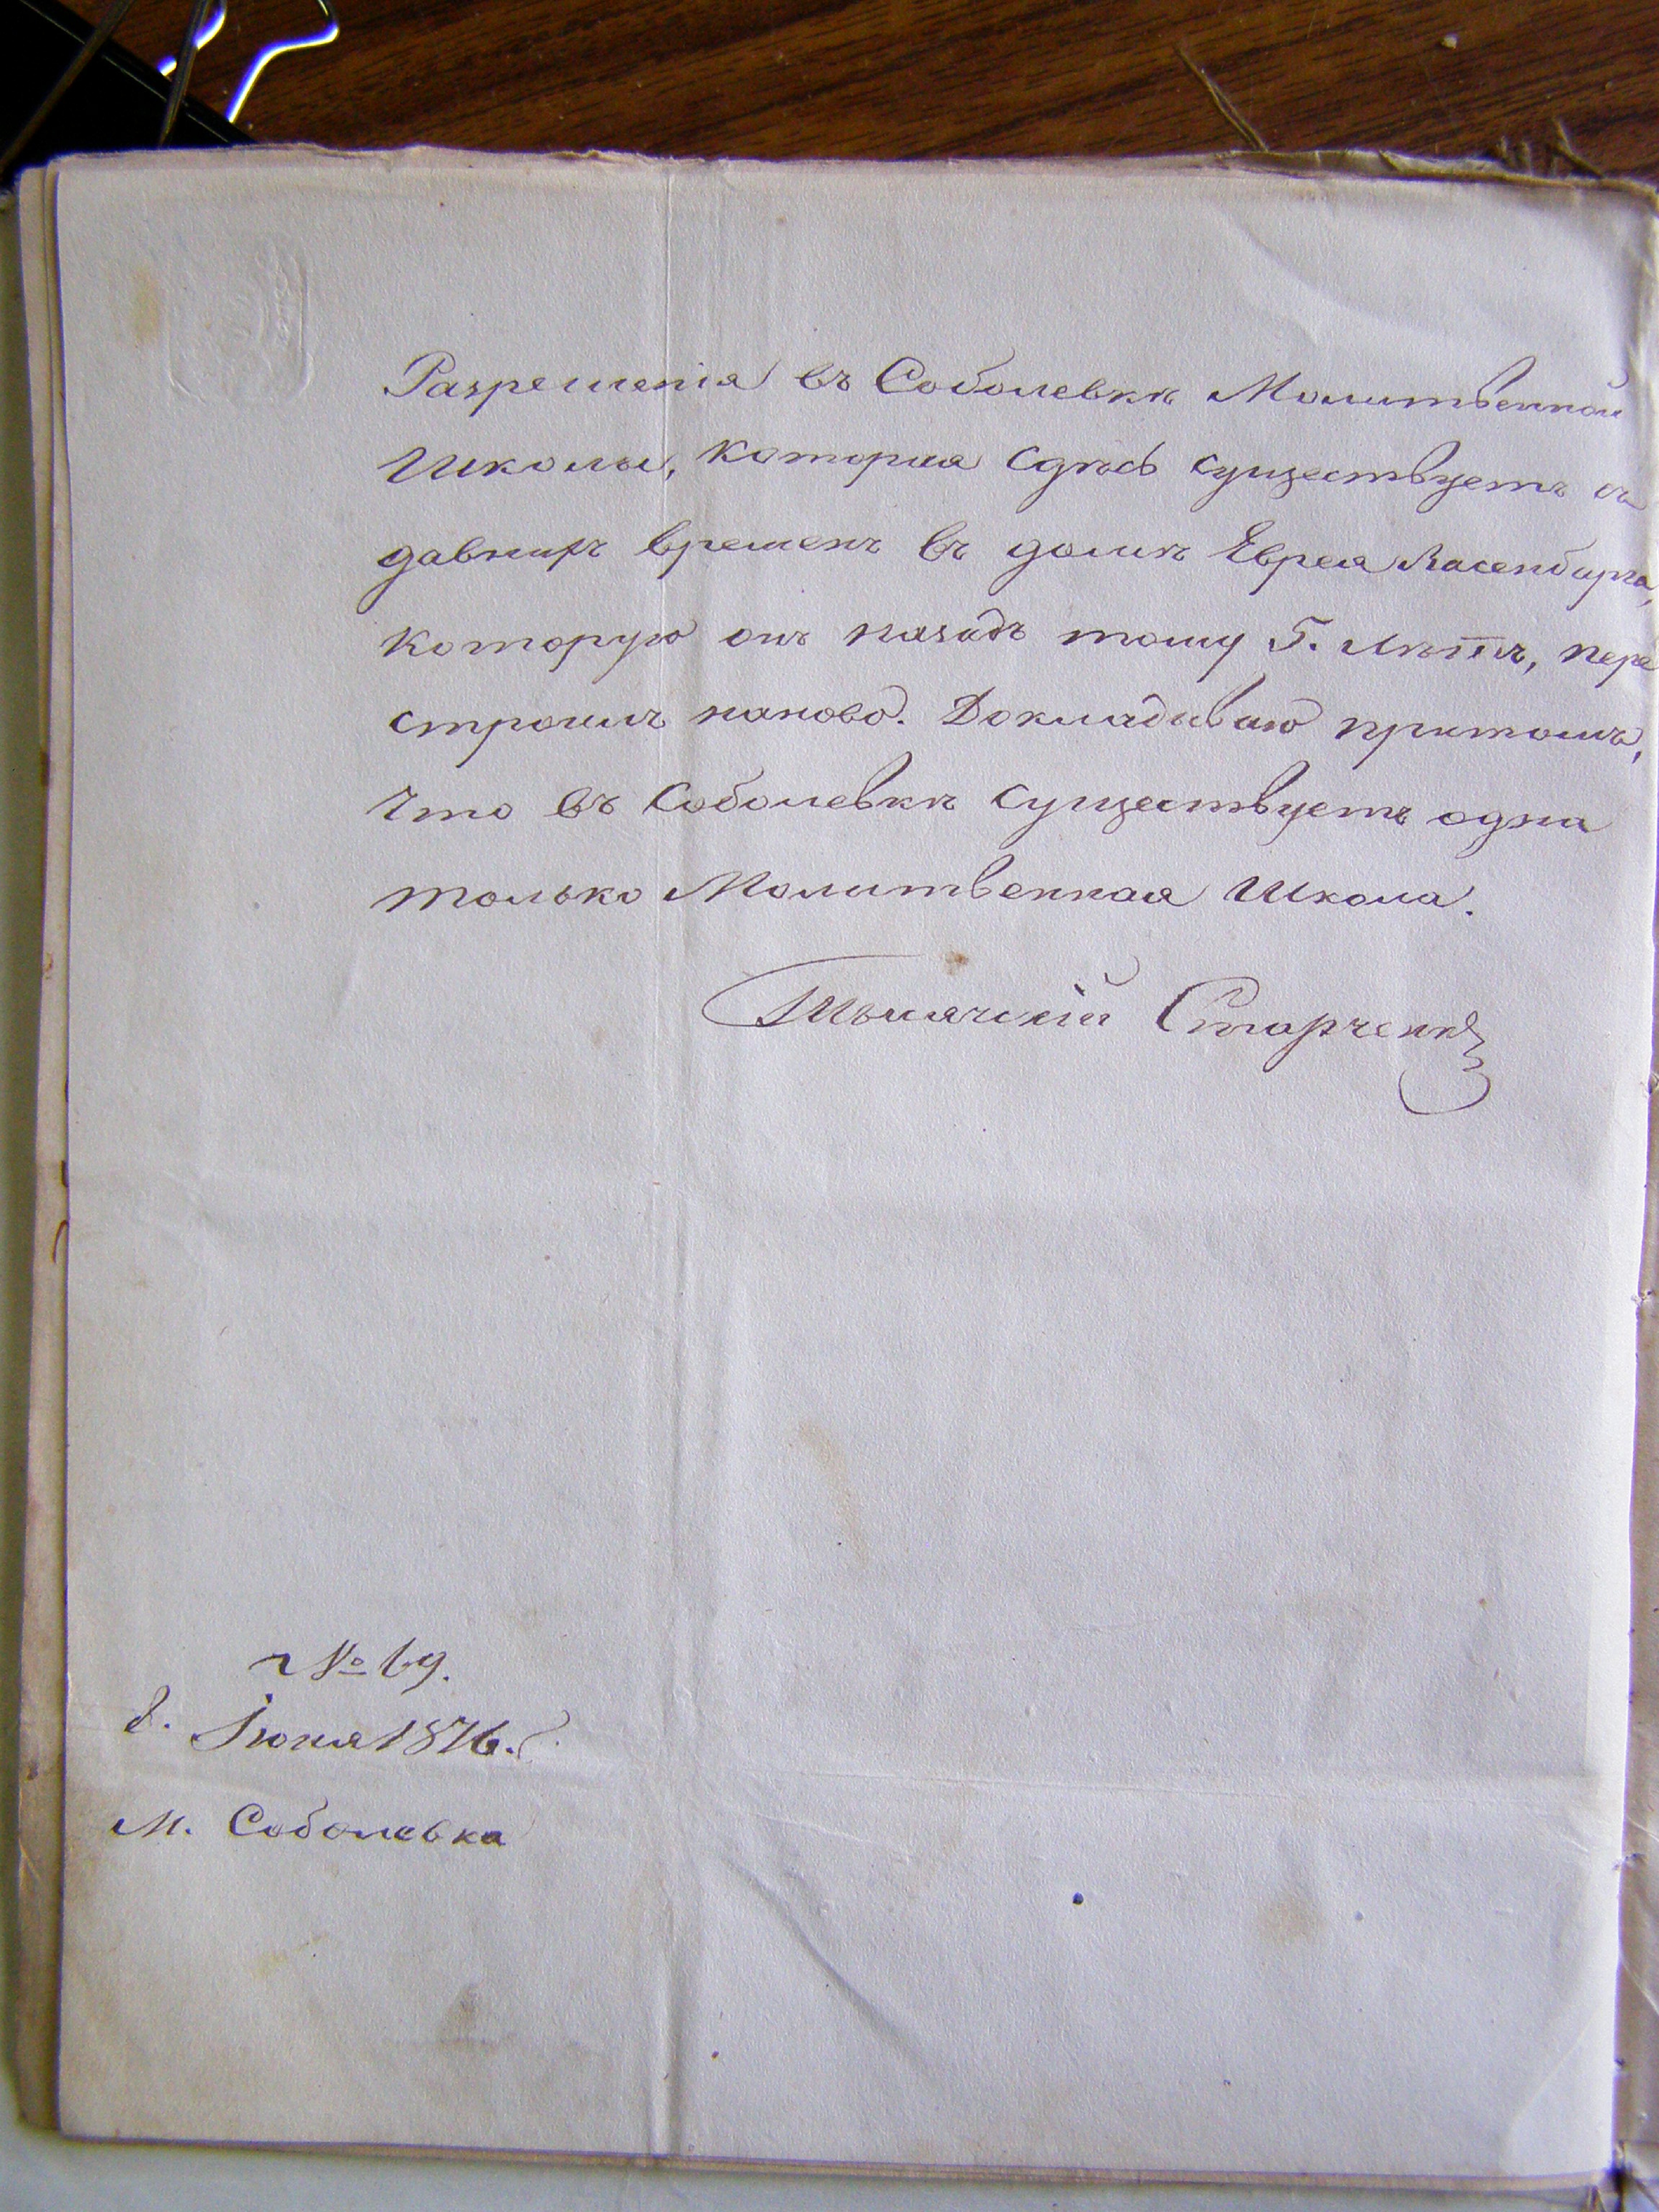 Разрешенія въ Соболевкѣ Молитвенной
Школы, которая сдѣсь существуетъ съ
давнихъ временъ въ домѣ Еврея
которую онъ назадъ тому 5. лѣтъ, пере
строилъ наново. Докладываю притомъ,
что въ Соболевкѣ существуетъ одна
только Молитвенная Школа.
Тысячскій Старченко
№ 69.
8. Іюня 1876. г.
М. Соболевка